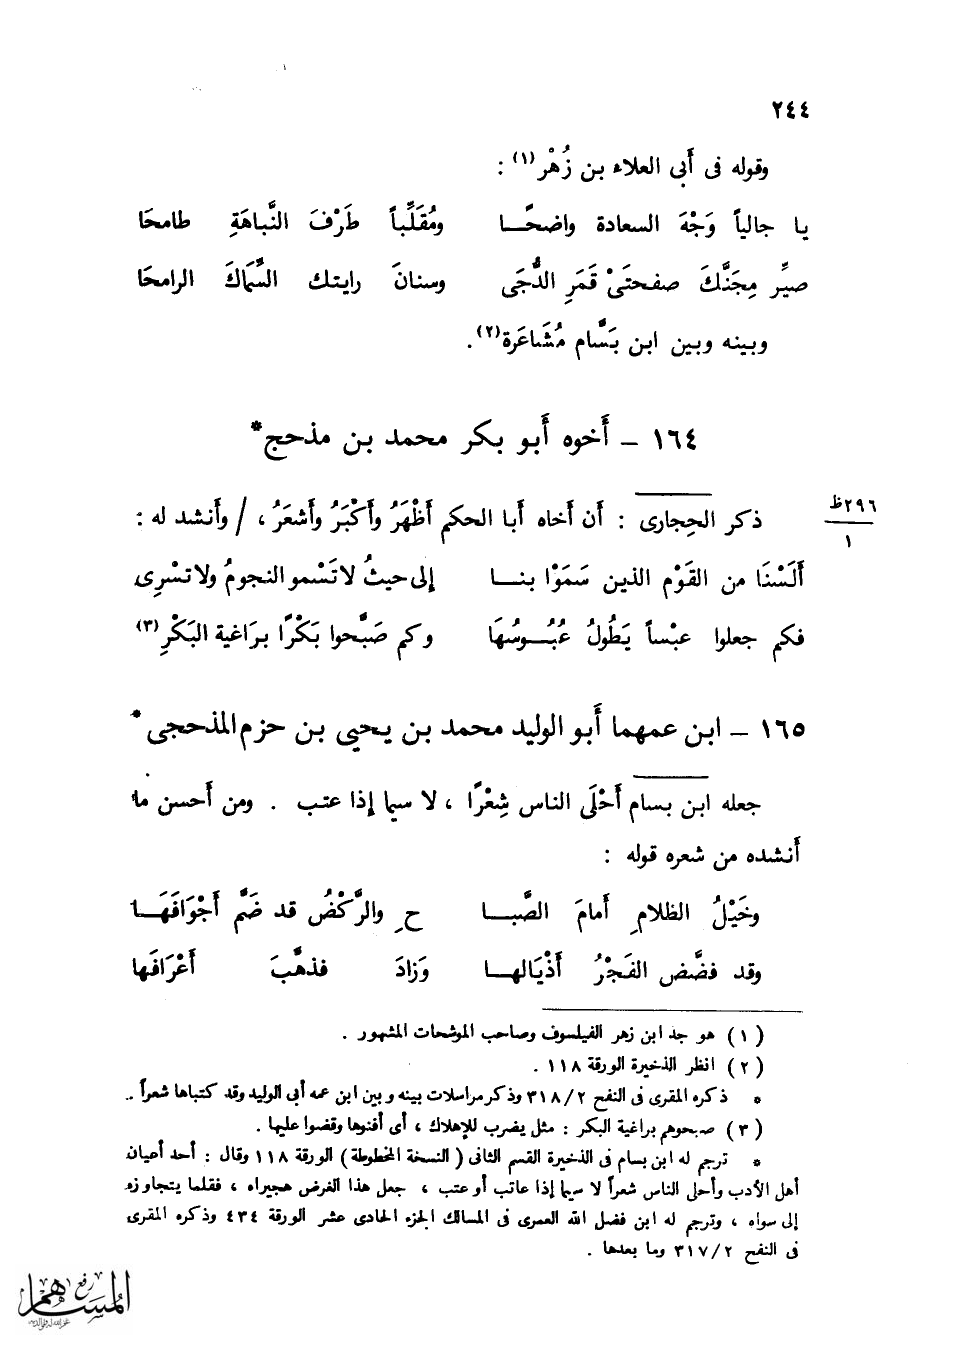 ٢٤٤
وقوله فى أَبى العلاء بن زُهْر(١) :
يا جالياً وَجْهَ السعادة واضحًـــا ومُقَلِّباً طَرْفَ النَّباهَةِ طامحَا
صيِّر مِجَنَّكَ صفحتَىْ قَمَرِ الدُّجَى وسنانَ رايتك السَّماكَ الرامحَا
وبينه وبين ابن بَسَّام مُشَاعَرة(٢) .
١٦٤ – أَخوه أَبو بكر محمد بن مذحج*
٢٩٦ظ
١
ذكر الحِجارى : أَن أَخاه أَبا الحكم أَظْهَرُ وأَكْبَرُ وأَشعَرُ ، / وأَنشد له :
أَلَسْنَا من القَوْم الذين سَمَوْا بنـــا إلى حيثُ لا تَسْمو النجومُ ولا تسْرِى
فكم جعلوا عبْساً يَطُولُ عُبُـــوسُهَا وكم صَبَّحوا بَكْرًا براغية البَكْرِ(٣)
١٦٥ – ابن عمهما أَبو الوليد محمد بن يحيى بن حزم المذحجى*
جعله ابن بسام أَحْلَى الناس شِعْرًا ، لا سيما إذا عتب . ومن أَحسن ما
أَنشده من شعره قوله :
وخَيْلُ الظلامِ أَمامَ الصَّبـــا حِ والرَّكْضُ قد ضَمَّ أَجْوَافَهَـــا
وقد فضَّض الفَجْرُ أَذْيَالهـــا وَزادَ فذهَّبَ أَعْرَافَها
(١) هو جد ابن زهر الفيلسوف وصاحب الموشحات المشهور .
(٢) انظر الذخيرة الورقة ١١٨ .
* ذكره المقرى فى النفح ٣١٨/٢ وذكر مراسلات بينه وبين ابن عمه أبى الوليد وقد كتباها شعراً .
(٣) صبحوهم براغية البكر : مثل يضرب للإهلاك ، أى أفنوها وقضوا عليها .
* ترجم له ابن بسام فى الذخيرة القسم الثانى (النسخة المخطوطة) الورقة ١١٨ وقال : أحد أعيان
أهل الأدب وأحلى الناس شعراً لا سيما إذا عاتب أو عتب ، جعل هذا الغرض هجيراه ، فقلما يتجاوزه
إلى سواه ، وترجم له ابن فضل الله العمرى فى المسالك الجزء الحادى عشر الورقة ٤٣٤ وذكره المقرى
فى النفح ٣١٧/٢ وما بعدها .
رفع
المساهم